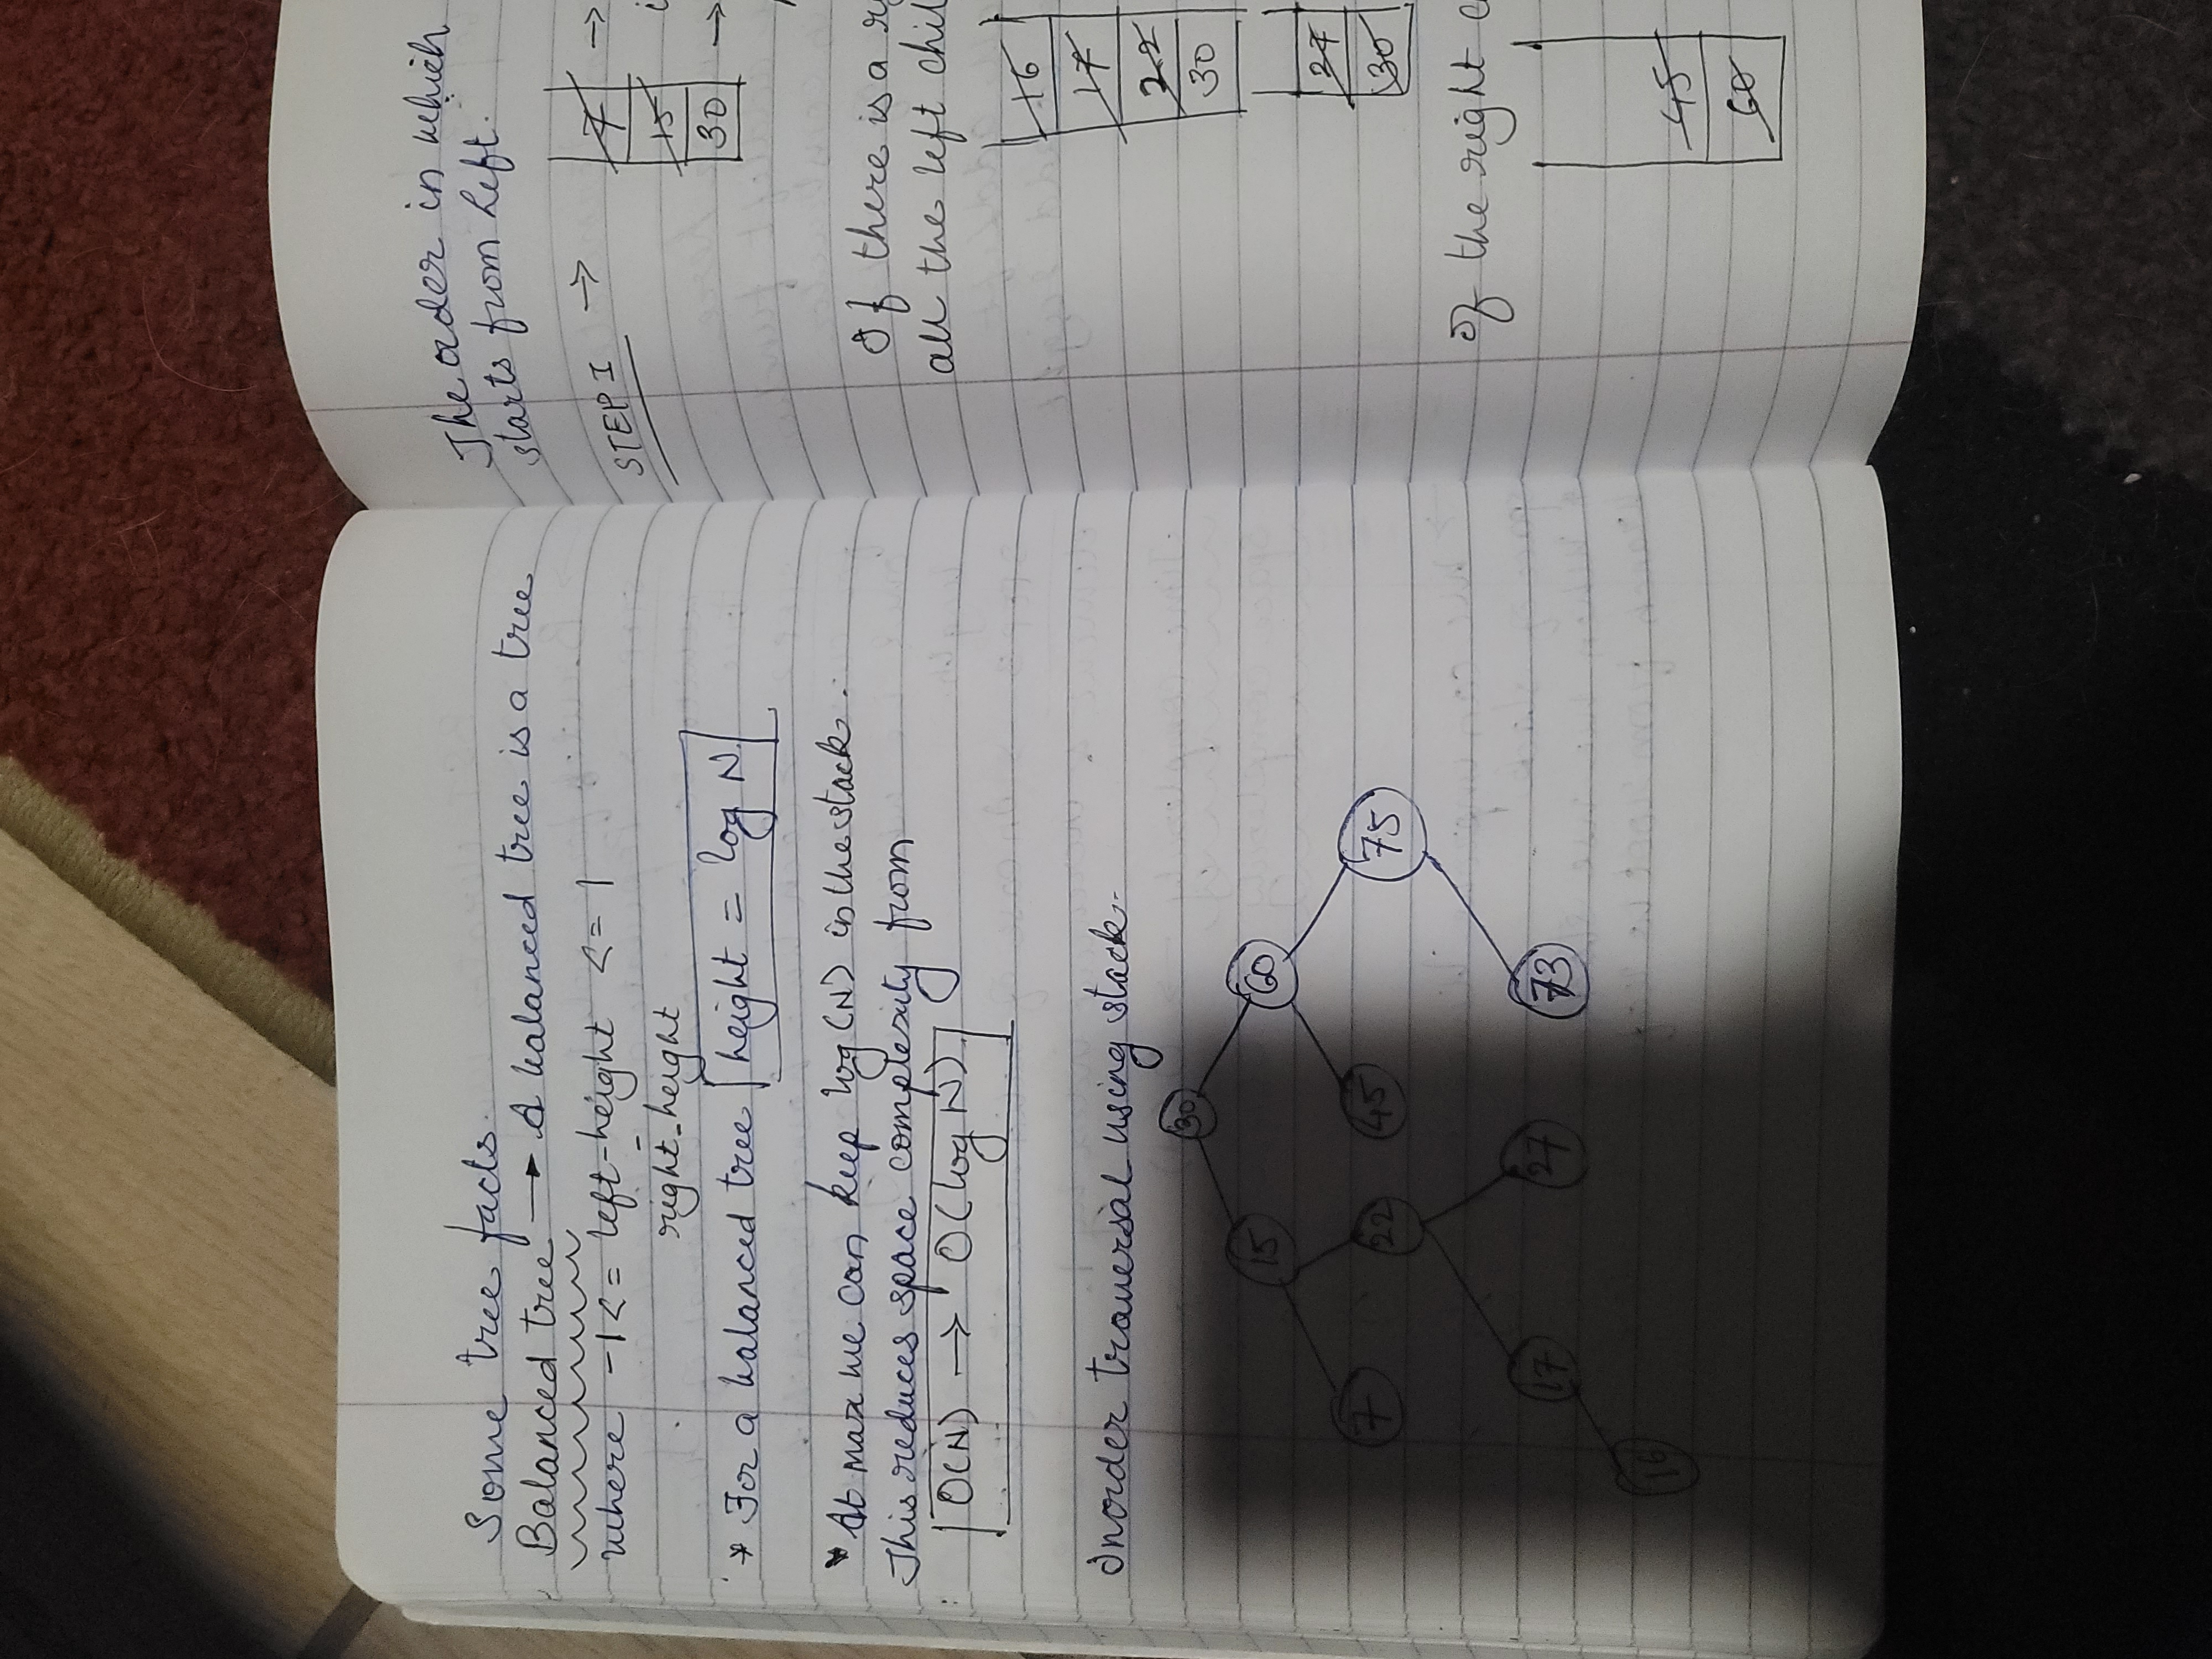 Some tree facts.
Balanced tree → A balanced tree is a tree
where -1<= left-height <= 1
-
right-height
* For a balanced tree height = log N
* At max we can keep log(N) in the stack.
This reduces space complexity from
O(N) → O(log N)
Inorder traversal using stack.
30
15 60
7 22 45 75
17 27 73
16
The order in which
starts from left.
STEP I → 7 →
15
30 →
If there is a
all the left
16
17
22
30
27
30
If the right
45
60